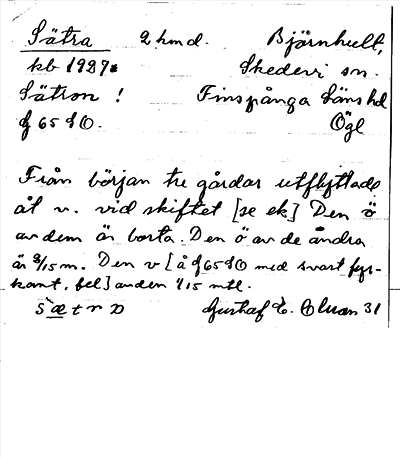 Sätra 2 hmd. Björnhult,
kb 1927. Skedevi sn.
Sätron! Finspånga läns hd
f 65 SO. Ögl
Från början tre gårdar utflyttade
åt v. vid skiftet [se ek] Den ö
av dem är borta. Den ö av de andra
är 8/15 m. Den v [å f 65 SO med svart fyr-
kant, fel] anden 1/15 mtl.
Gustaf E. Olson 31